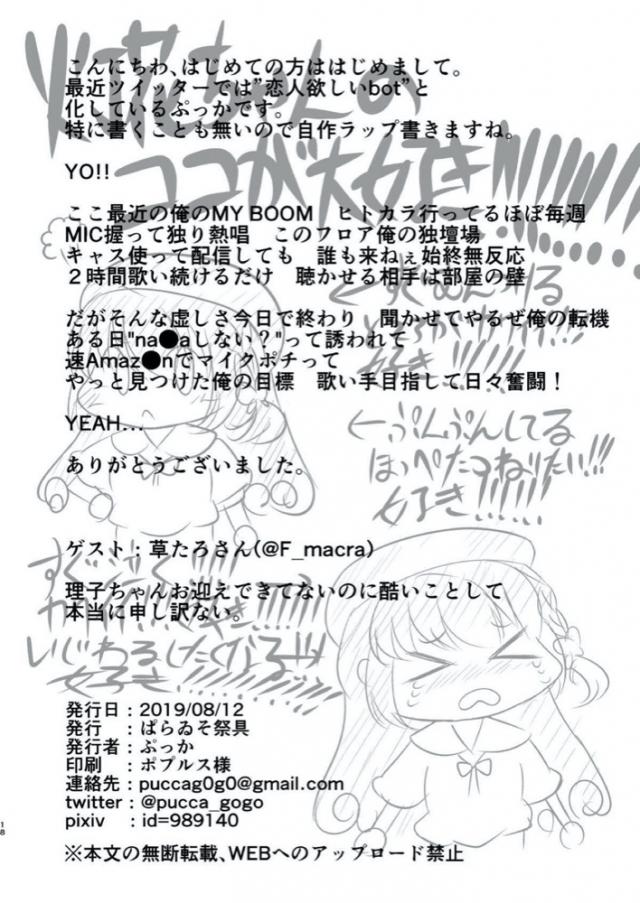 こんにちわ、はじめての方ははじめまして。
最近ツイッターでは"恋人欲しいbot"と
化しているぷっかです。
特に書くことも無いので自作ラップ書きますね。
YO!!
ここ最近の俺のMY BOOM　ヒトカラ行ってるほぼ毎週
MIC握って独り熱唱　このフロア俺の独壇場
キャス使って配信しても　誰も来ねぇ始終無反応
２時間歌い続けるだけ　聴かせる相手は部屋の壁
だがそんな虚しさ今日で終わり　聞かせてやるぜ俺の転機
ある日"na●aしない？"って誘われて
速Amaz●nでマイクポチって
やっと見つけた俺の目標　歌い手目指して日々奮闘！
YEAH…
ありがとうございました。
ゲスト：草たろさん(@F_macra)
理子ちゃんお迎えできてないのに酷いことして
本当に申し訳ない。
発行日：2019/08/12
発行　：ぱらゐそ祭具
発行者：ぷっか
印刷　：ポプルス様
連絡先：puccag0g0@gmail.com
twitter：@pucca_gogo
pixiv　：id=989140
※本文の無断転載、WEBへのアップロード禁止
ちゃんの
ココが大好き!!!
←ぷんぷんしてる
ほっぺたつねりたい!!!
好き!!!!!
いじわるしたくなる!!
好き!!!!!
18